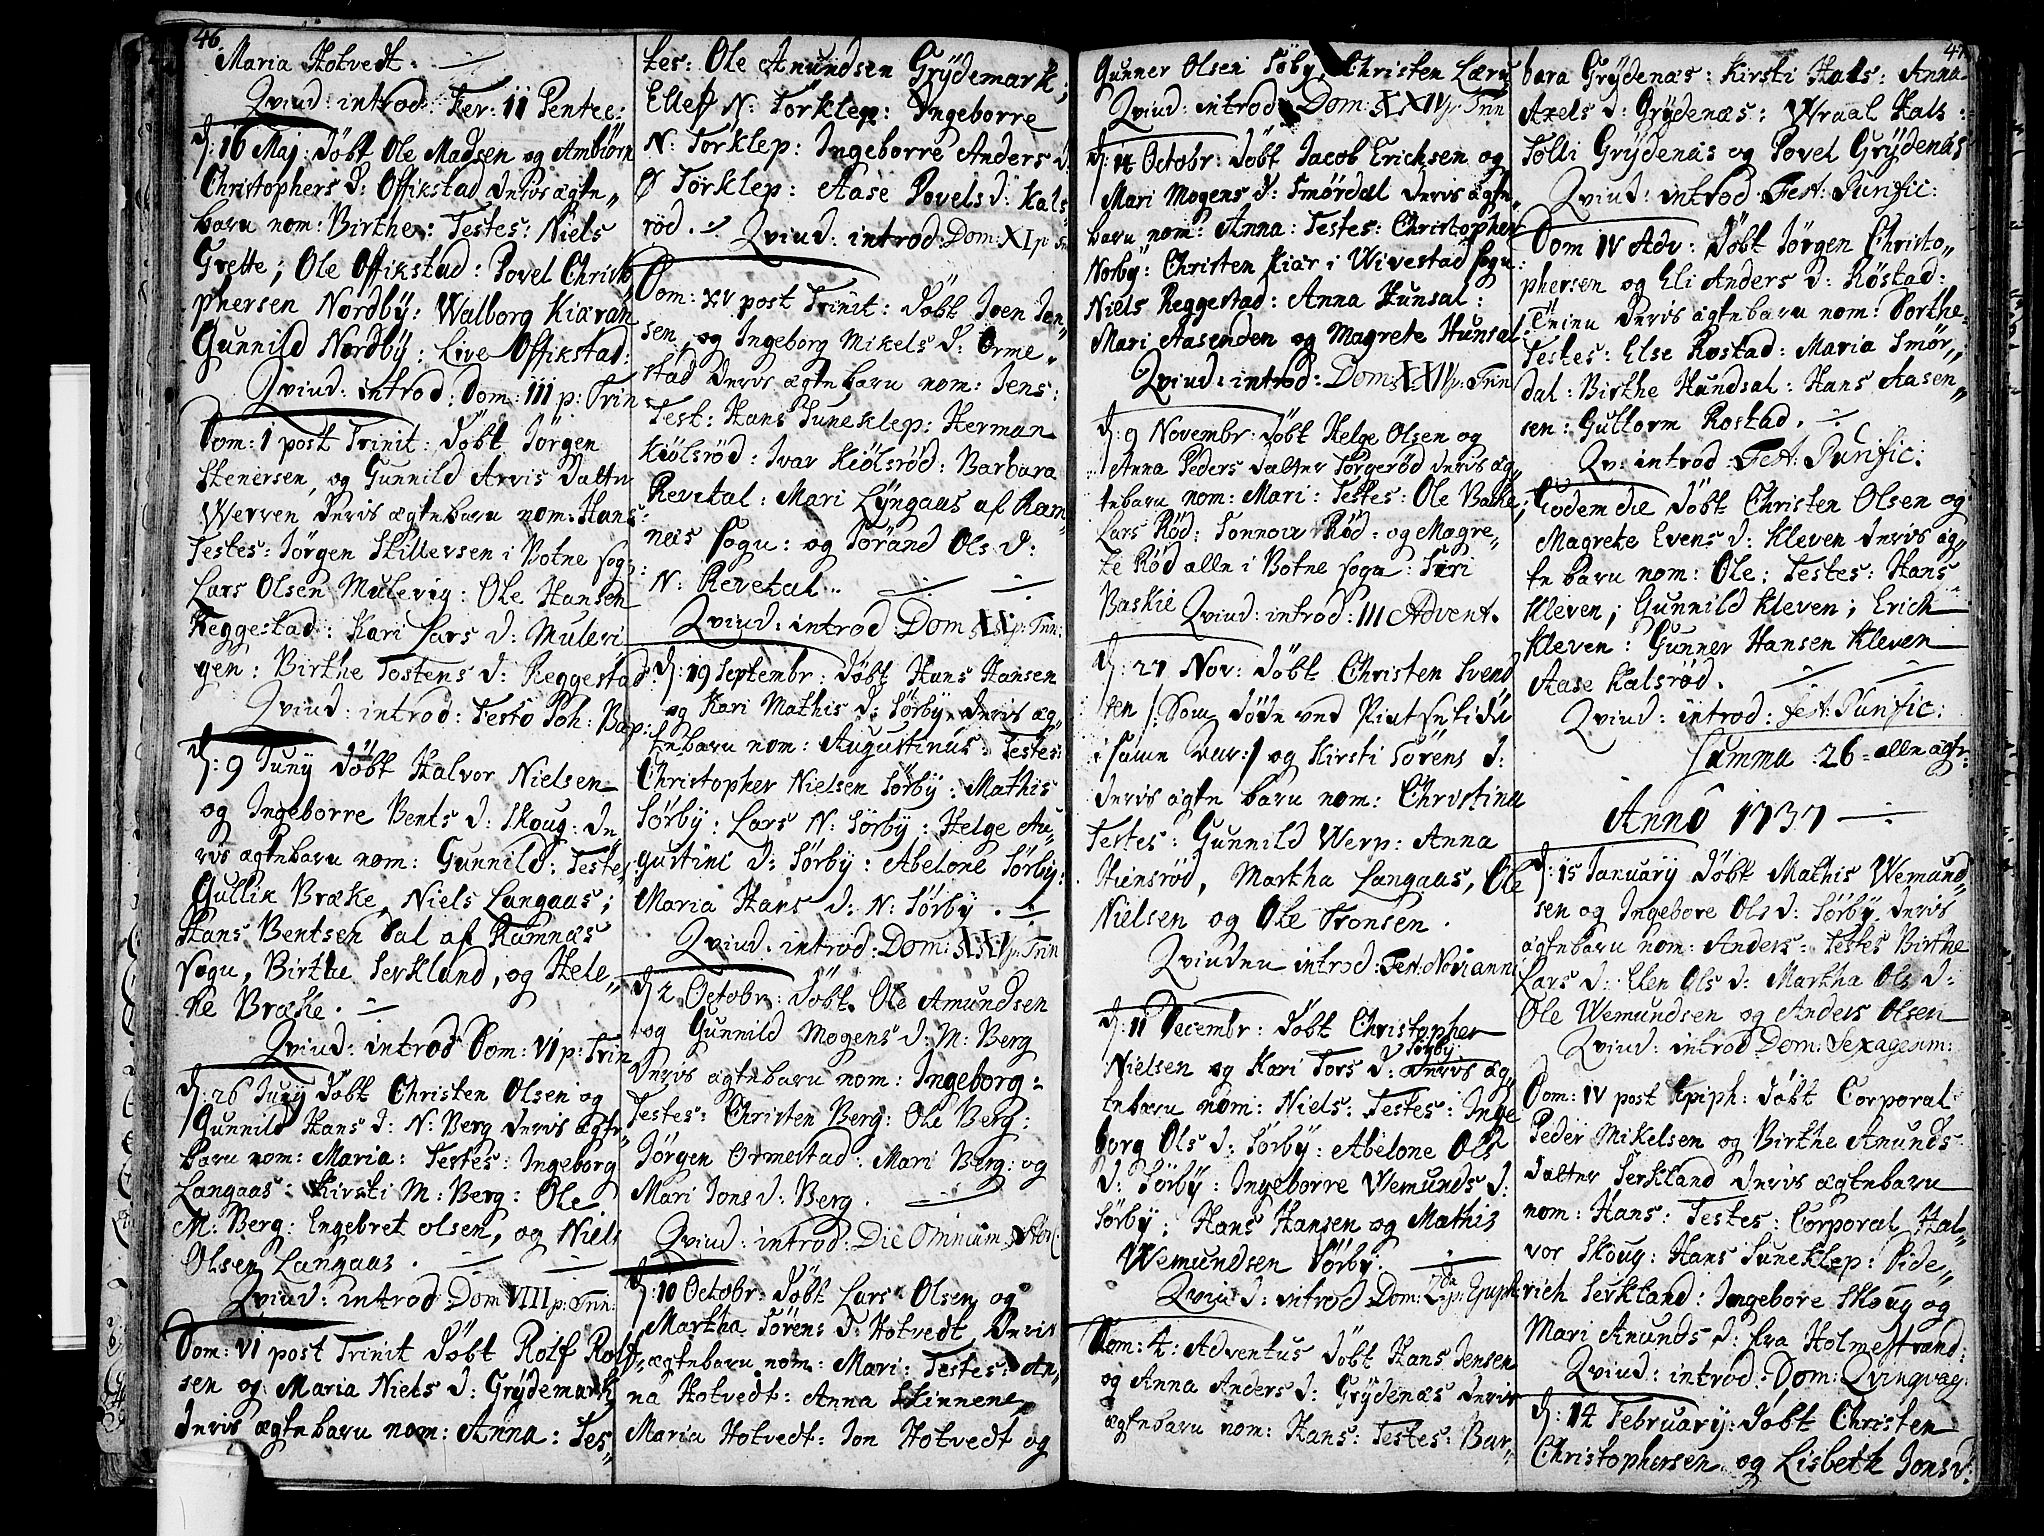 46.
Maria Hotvedt.
Qvind: introd: Fer: II Pentec:
d: 16 Maj: döbt Ole Madsen og Ambiörn
Christophers D: Offikstad deris ægte
barn nom: Birthe: Testes: Niels
Grette; Ole Offikstad: Povel Christo
phersen Nordby: Walborg Kiæran
Gunnild Nordby: Live Offikstad:
Qvind: introd: Dom: III p: Trin
Dom: 1 post Trinit: döbt Jörgen
Stenersen, og Gunnild Arvis datter
Werven deris ægtebarn nom: Hans:
Testes: Jörgen Skillersen i Botne sogn:
Lars Olsen Mulevig: Ole Hansen
Reggestad: Kari Lars D: Mulevi
gen: Birthe Tostens D: Reggestad:
Qvind: introd: Festo Joh: Bap:
d: 9 Juny döbt Halvor Nielsen
og Ingeborre Bents D: Skoug: de
ris ægtebarn nom: Gunnild: Testes
Gullik Bræke, Niels Langaas;
Hans Bentsen Dal af Ramnæs
sogn, Birthe Serkland, og Hele
ne Bræke.
Qviud: introd Dom: VI p: Trin
d: 26 Juny döbt Christen Olsen og
Gunnild Hans D: N: Berg deris ægte
barn nom: Maria: Testes: Ingeborg
Langaas: Kirsti M: Berg: Ole
M: Berg: Engebret Olsen, og Niels
Olsen Langaas.
Qviud: introd Dom VIII p: Trin:
Dom: VI post Trinit döbt Rolf Rolf
sen og Maria Niels D: Grydemark
deris ægtebarn nom: Anna: Tes
tes: Ole Anundsen Grydemark;
Ellef N: Torklep: Ingeborre
N: Torklep: Ingeborre Anders D:
Ø Torklep: Aase Povels D: Kals
röd. Qviud: introd Dom: XI p
Dom: XV post Trinit: döbt Iven Jen
sen, og Ingeborg Mikels D: Orme
stad deris ægtebarn nom: Jens:
Test: Hans Suneklep: Herman
Kiölsröd: Ivar Kiölsröd: Barbara
Revetal: Mari Lyngaas af Ram
nes sogn: og Törand Ols D:
N: Revetal.
Qviud: introd Dom XX p: Trin:
d: 19 Septembr: döbt Hans Hansen
og Kari Mathis D: Sörby deris æg
tebarn nom: Augustinus: Testes:
Christopher Nielsen Sörby: Mathis
Sörby: Lars N: Sörby: Helge Au
gustini D: Sörby: Abelone Sörby:
Maria Hans D: N: Sörby.
Qviud: introd: Dom: XXI p: Trin
d: 2 Octobr: döbt Ole Amundsen
og Gunnild Mogens D: M: Berg
deris ægtebarn nom: Ingeborg:
Testes: Christen Berg: Ole Berg:
Jörgen Ormestad: Mari Berg: og
Mari Jons D: Berg.
Qviud: introd: Die Omnium
d: 10 Octobr: döbt Lars Olsen og
Martha Sörens D: Hotvedt deris
ægtebarn nom: Mari: Testes: An
na Hotvedt: Anna Skinnene
Maria Hotvedt: Jon Hotvedt og
47.
Gunner Olsen Söby, Christen Læru
Qviud: introd: Dom: XXIV p: Trin
d: 14 Octobr: döbt Jacob Erichsen og
Mari Mogens D: Smördal deris ægte
barn nom: Anna: Testes: Christopher
Norby: Christen Kiær i Wivestad sogn:
Niels Reggestad: Anna Hunsal:
Mari Aasenden og Magrete Hunsal:
Qviud: introd: Dom XXIV p: Trin
d: 9 Novembr: döbt Helge Olsen og
Anna Peders datter Torgeröd deris æg
tebarn nom: Mari: Testes: Ole Baske;
Lars Röd: Sonnow Röd: og Magre
te Röd alle i Botne sogn: Siri
Baskie Qviud: introd: III Advent.
d: 27 Nov: döbt Christen Svend
sen /: Som döde ved Pintsetider
i samme Aar:/ og Kirsti Sörens D:
deris ægte barn nom: Christina
Testes: Gunnild Werp: Anna
Hiensröd, Martha Langaas, Ole
Nielsen og Ole Tronsen.
Qvinden introd: Fest: Novi anni
d: 11 Decembr: döbt Christopher
Nielsen og Kari Tors D: Sörby deris æg
tebarn nom: Niels: Testes: Inge
borg Ols D: Sörby: Abelone Ols
D: Sörby: Ingeborre Wemunds D:
Sörby: Hans Hansen og Mathis
Wemundsen Sörby.
Qviud: introd Dom: p: Epiph:
Dom: 4: Adventus döbt Hans Jensen
og Anna Anders D: Grydenæs deris
ægtebarn nom: Hans: Testes: Bar
bara Grydenæs: Kirsti Hals: Anna
Axels D: Grydenæs: Wraal Hals:
Tolli Grydenæs og Povel Grydenæs
Qviud: introd Fest: Purific:
Dom IV Adv: döbt Jörgen Christo
phersen og Eli Anders D: Röstad:
deris ægtebarn nom: Dorthe:
Testes: Else Rostad: Maria Smör
dal: Birthe Hundsal: Hans Aasen
sen: Guttorm Rostad.
Qv: introd Fest: Purific:
Eodem die döbt Christen Olsen og
Magrete Evens D: Kleven deris æg
te barn nom: Ole: Testes: Hans
Kleven; Gunnild Kleven; Erich
Kleven: Gunner Hansen Kleven
Aase Kalsröd.
Qviud: introd: Fest: Purific:
Summa: 26 = alle ægte:
Anno 1737
d: 15 January döbt Mathis Wemund
sen og Ingebore Ols D: Sörby deris
ægtebarn nom: Anders: Testes Birthe
Lars D: Elen Ols D: Martha Ols D:
Ole Wemundsen og Anders Olsen
Qviud: introd Dom: Sexagesim:
Dom: IV post Epiph: döbt Corporal
Peder Mikelsen og Birthe Anunds
datter Serkland deris ægtebarn
nom: Hans: Testes: Corporal Hal
vor Skoug: Hans Suneklep: Dide
rich Serkland: Ingebore Skoug og
Mari Anunds D: fra Holmestrand:
Qviud: introd: Dom: Qvinqvag:
d: 14 February: döbt Christen
Christophersen og Lisbeth Jons D: